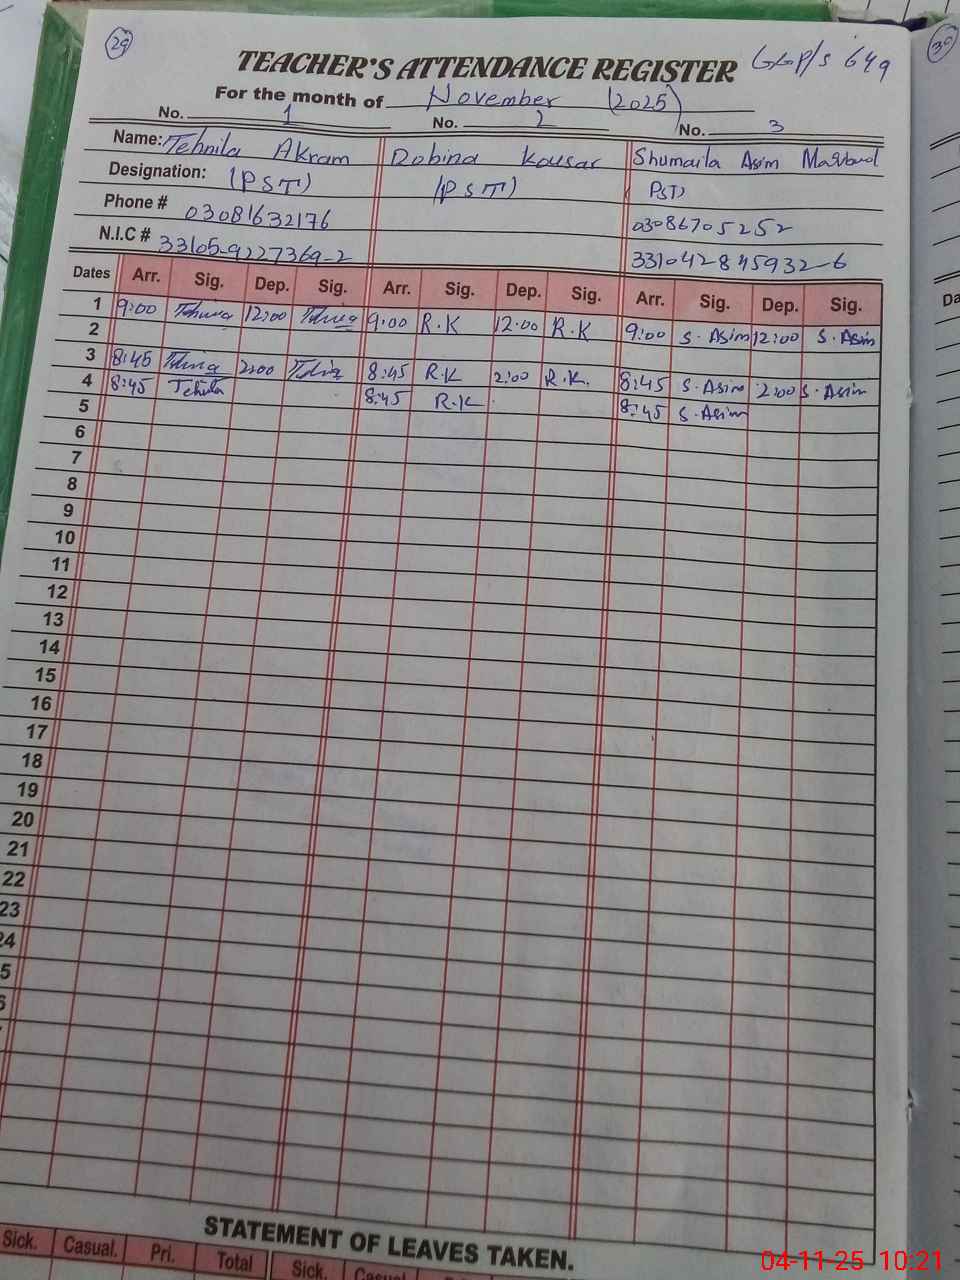 29
TEACHER'S ATTENDANCE REGISTER GGP/S 649
For the month of November (2025)
No. 1 No. 2 No. 3
Name: Tehnila Akram Robina Kousar Shumaila Asim
Designation: (PST) (PST) PST)
Phone # 03081632176 03086705252
N.I.C # 33105-9227369-2 331042845932-6
Dates Arr. Sig. Dep. Sig. Arr. Sig. Dep. Sig. Arr. Sig. Dep. Sig.
1 9:00 12:00 9:00 R.K 12:00 R.K 9:00 S.Asim 12:00 S.Asim
2
3 8:45 2:00 8:45 R.K 2:00 R.K. 8:45 S.Asim 2:00 S.Asim
4 8:45 8:45 R.K 8:45 S.Asim
5
6
7
8
9
10
11
12
13
14
15
16
17
18
19
20
21
22
23
24
5
STATEMENT OF LEAVES TAKEN.
Sick. Casual. Pri. Total Sick. Casual
04-11-25 10:21